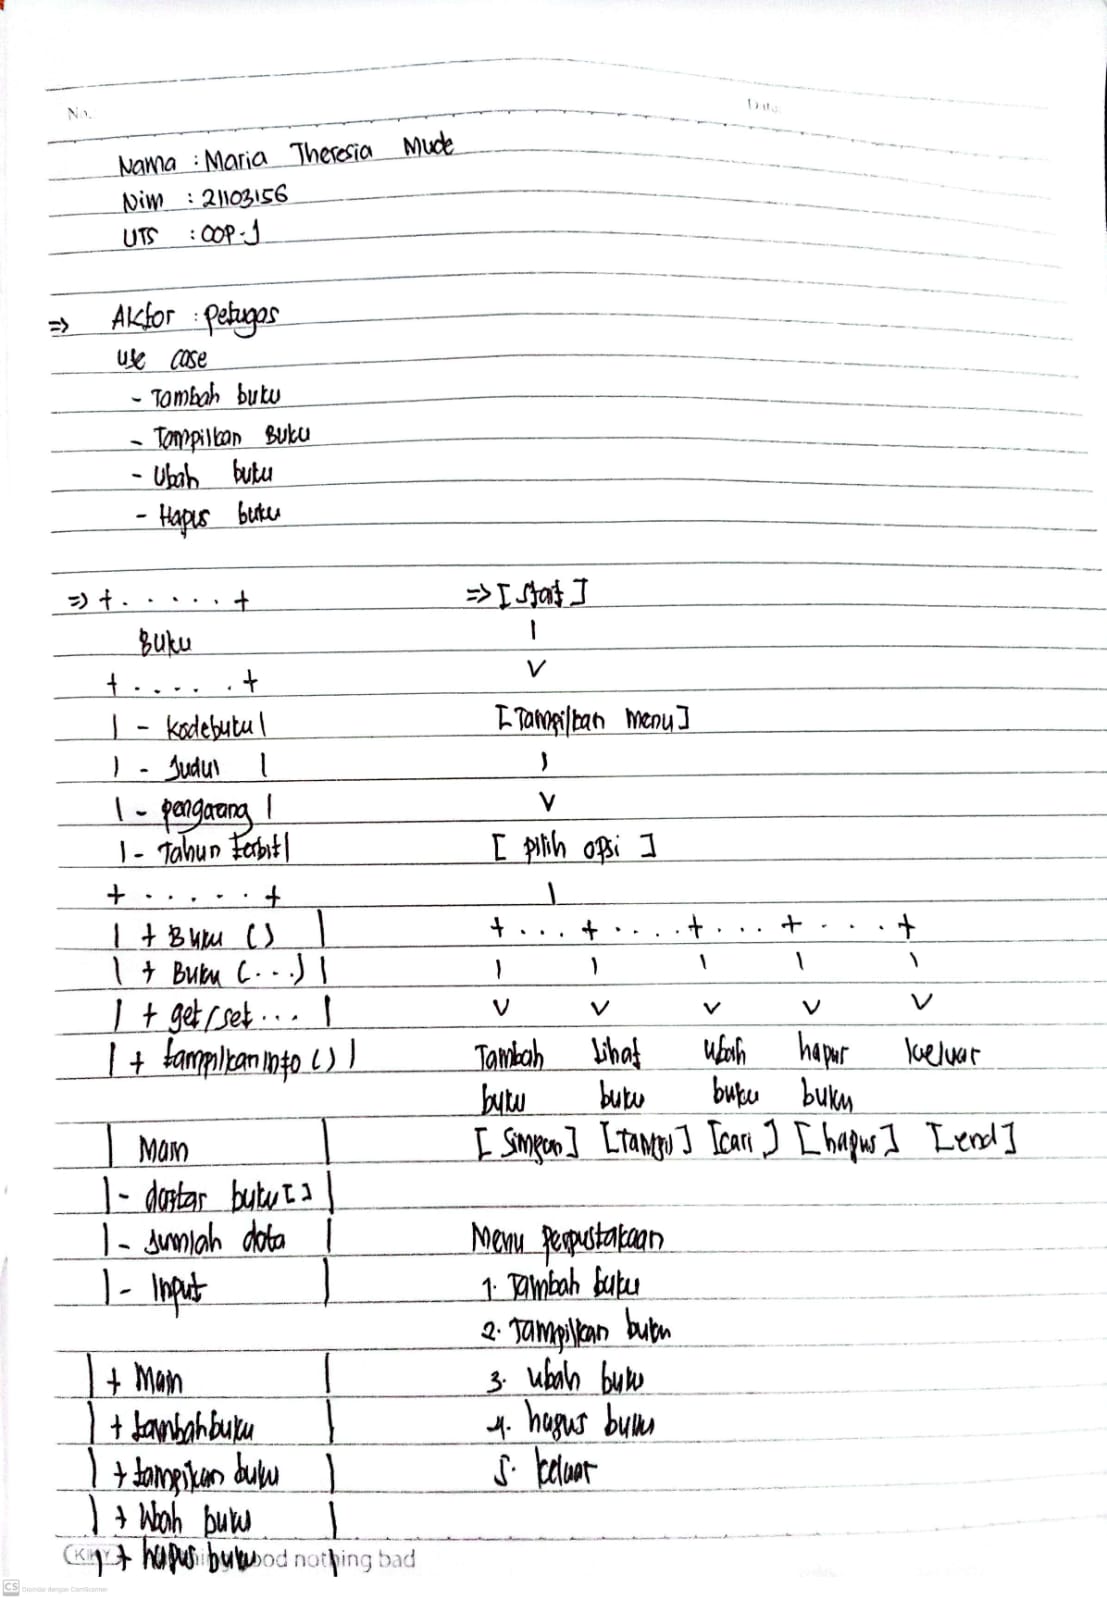 No.
Date
Nama : Maria Theresia Mude
Nim : 21103156
UTS : OOP-1
=> Aktor : petugas
use case
- Tambah buku
- Tampilkan Buku
- Ubah buku
- Hapus buku
=> + . . . . . +
Buku
+ . . . . . +
| - kodebuku |
| - Judul |
| - pengarang |
| - Tahun terbit |
+ . . . . . +
| + Buku () |
| + Buku (...) |
| + get/set ... |
| + tampilkaninfo () |
| Main |
| - daftar buku [] |
| - Jumlah data |
| - Input |
| + Main |
| + tambahbuku |
| + tampikan buku |
| + Ubah buku |
| + hapus buku |
=> [ Start ]
|
v
[Tampilkan menu]
|
v
[ pilih opsi ]
|
+ ... + .... + ... + .... +
| | | | |
v v v v v
Tambah Lihat Ubah hapus keluar
buku buku buku buku
[ Simpan ] [tampil] [cari ] [hapus] [end]
Menu perpustakaan
1. Tambah buku
2. Tampilkan buku
3. ubah buku
4. hapus buku
5. keluar
KIKY
good nothing bad
CS Dipindai dengan CamScanner